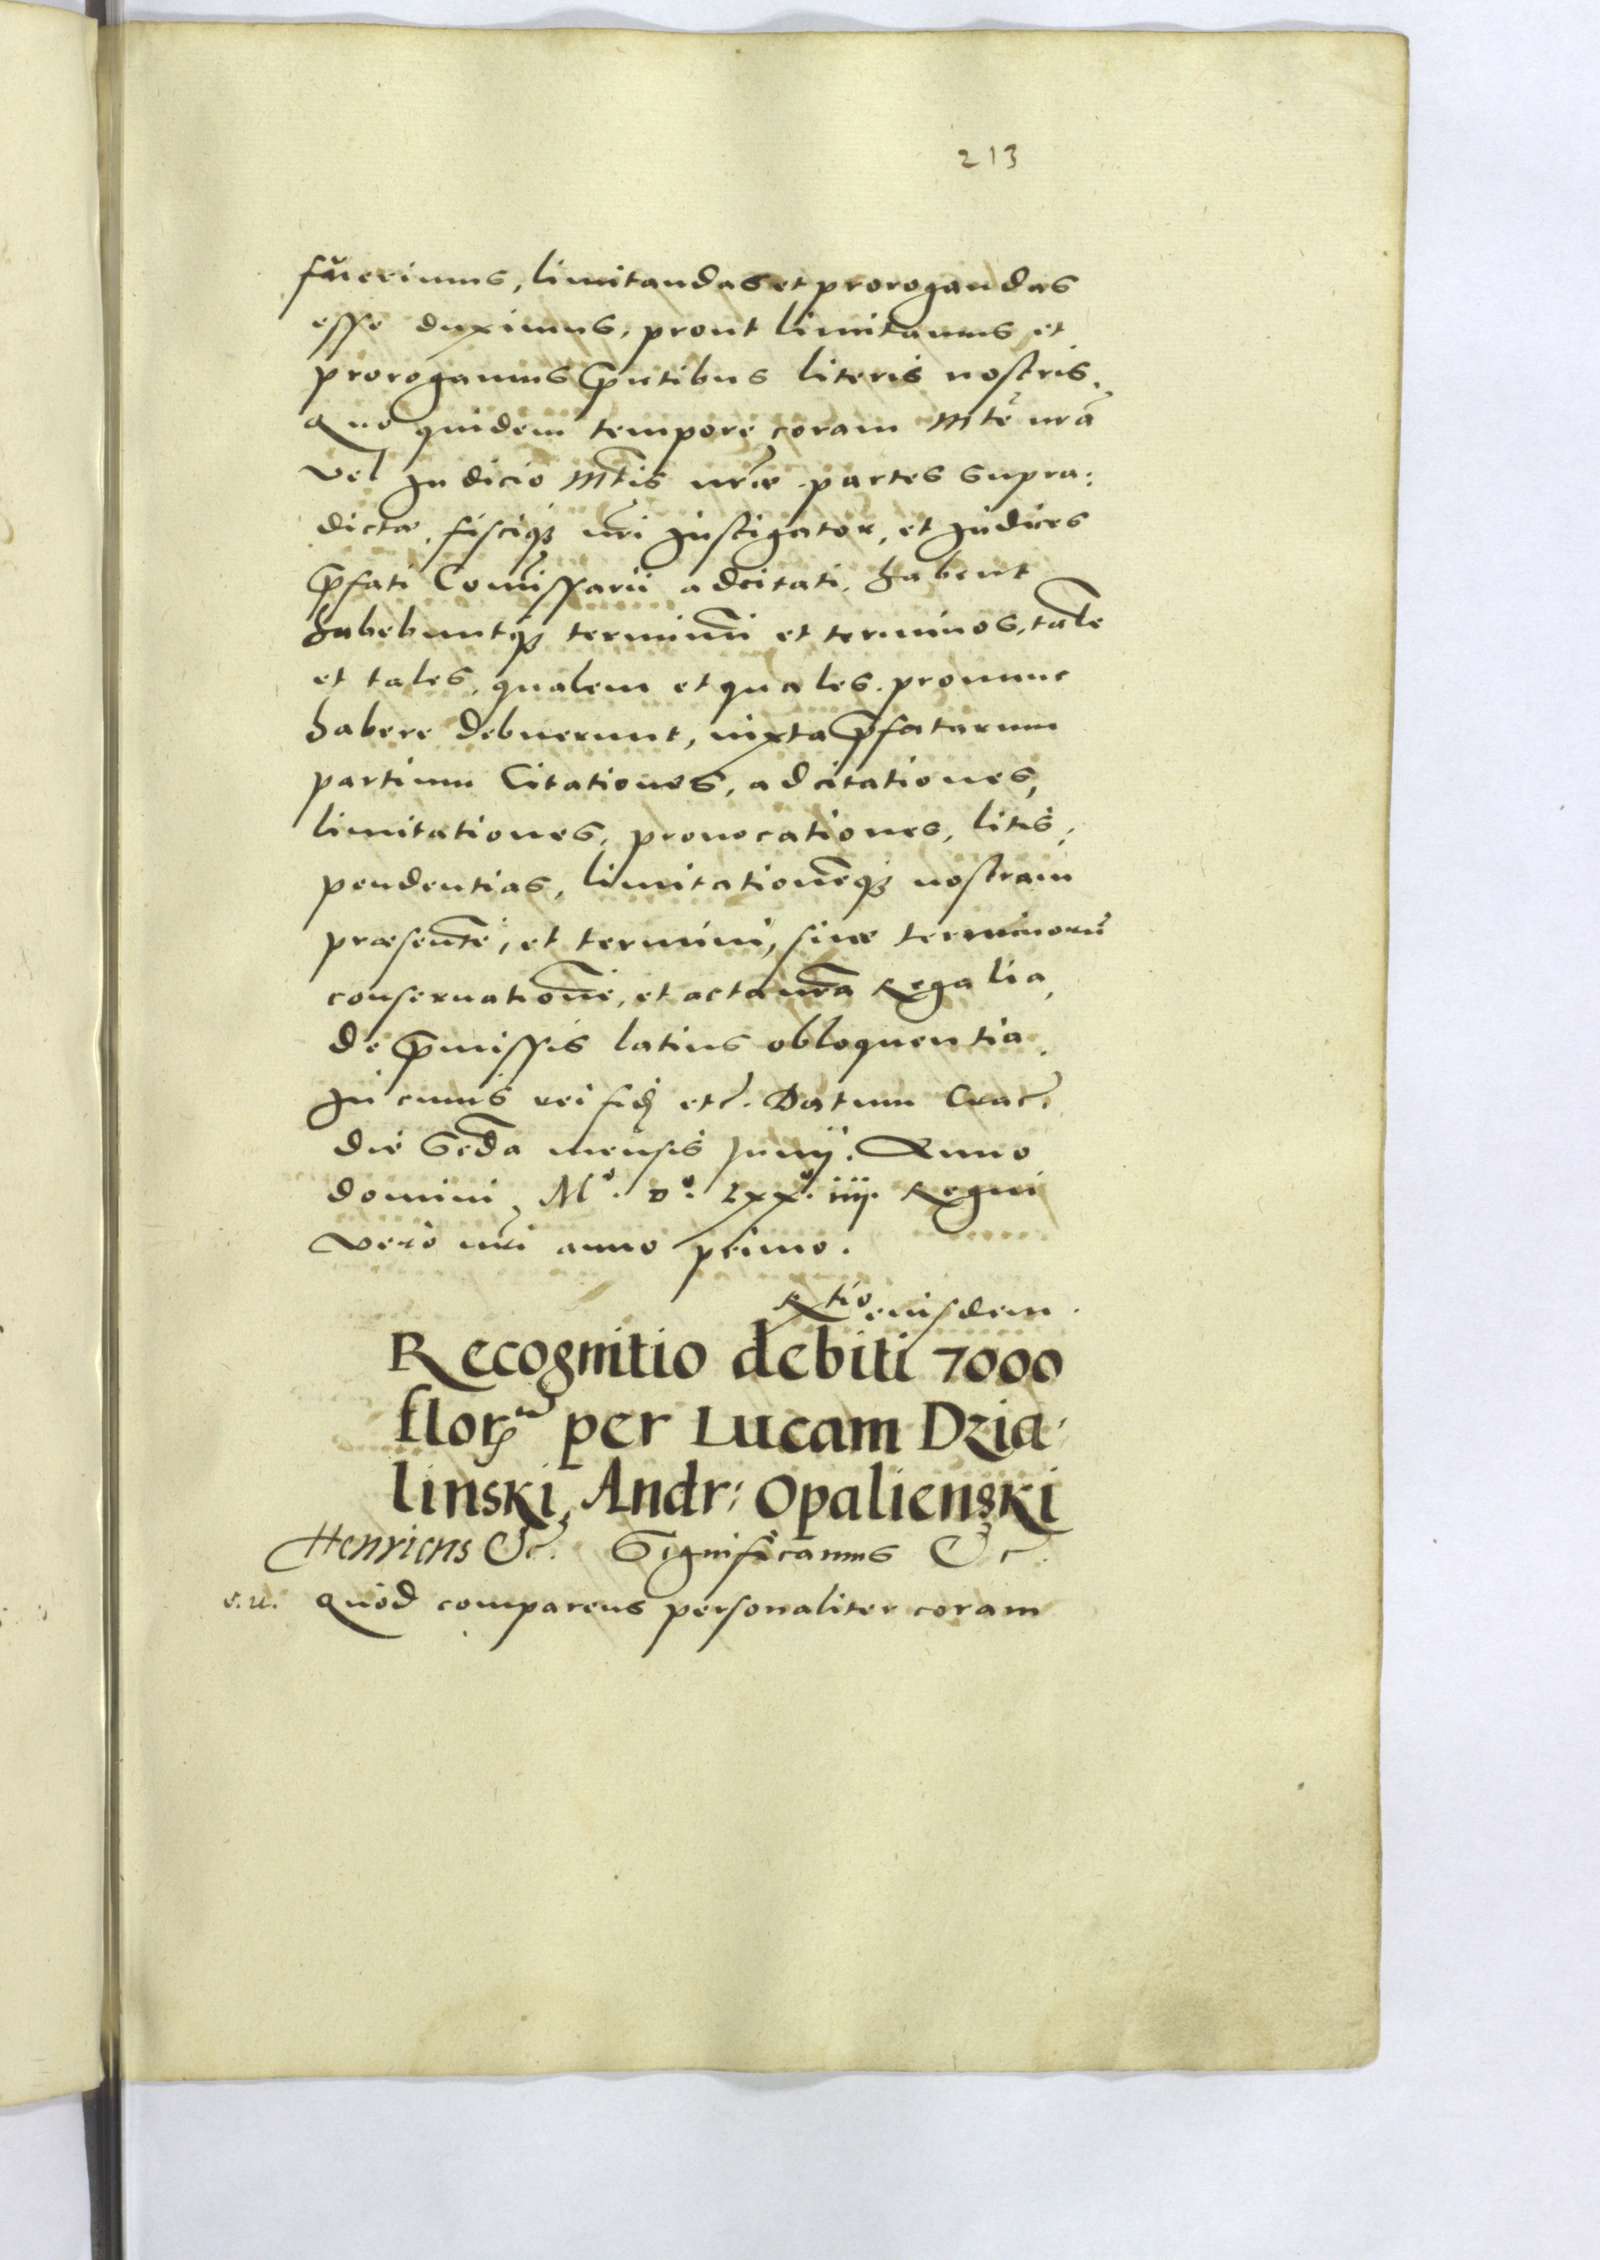 213
fuerimus, limitandas et prorogandas
esse duximus, prout limitamus et
prorogamus p̃ntibus literis nostris.
Quo quidem tempore coram Mte nrã
vel Judicio Mtis nrae partes supra:
dictae, fisciq̃ nri Instigator, et Judices
p̃fati Comissarii adcitati, habent
habebuntq̃ terminũ et terminos, talẽ
et tales, qualem et quales pronunc
habere debuerunt, iuxta p̃fatarum
partium Citationes, adcitationes,
limitationes, prouocationes, litis,
pendentias, limitationẽq̃ nostram
praesentẽ, et termini, siue terminorũ
conseruationẽ, et acta nra Regalia,
de p̃missis latius obloquentia.
In cuius rei fid etc. Datum Crac.
die Scda mensis Junij. Anno
domini, Mº. Dº. Lxxº. iiij. Regni
vero nri anno primo.
Rtio eiusdem.
Recognitio debiti 7000
flor per Lucam Dzia-
linski, Andr: Opalienski
Henricus &c. Significamus &c.
s.u. Quod comparens personaliter coram